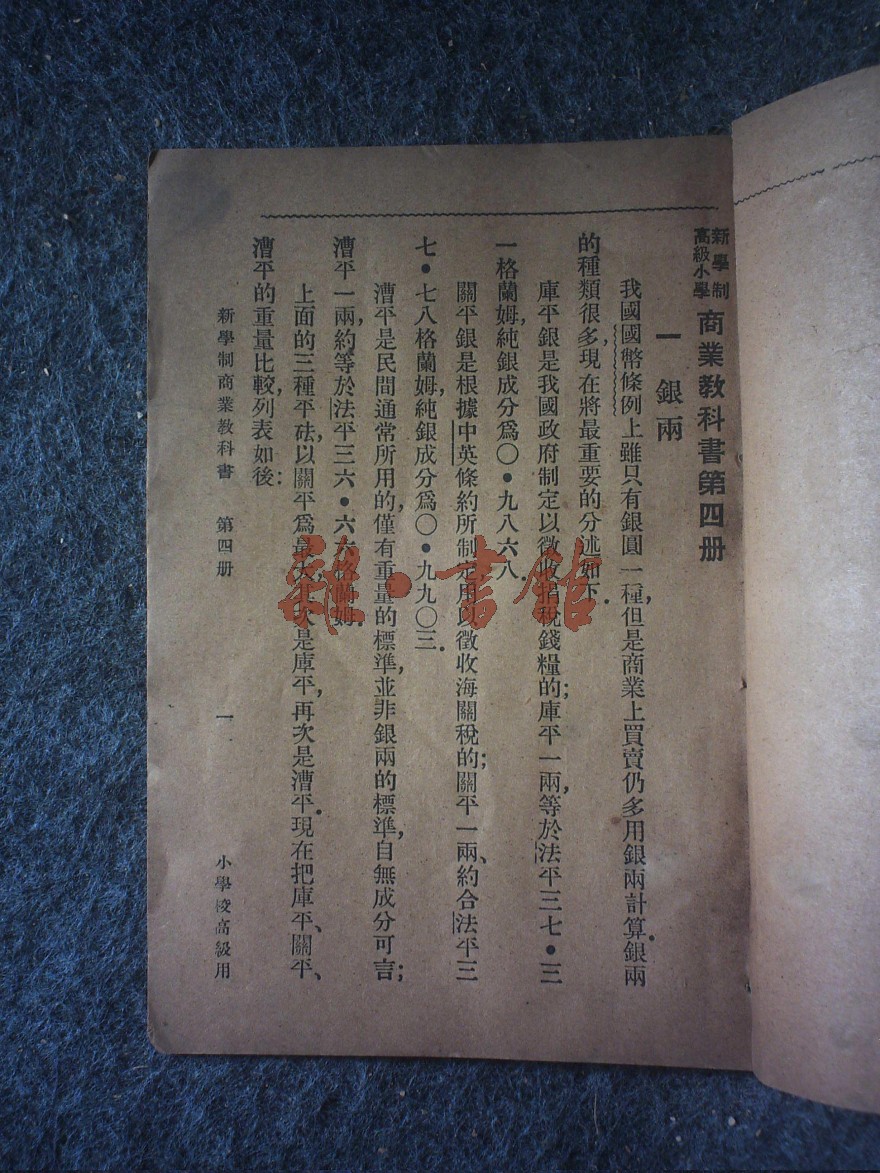 新學制
高級小學
商業教科書第四册
一 銀兩
我國國幣條例上雖只有銀圓一種，但是商業上買賣仍多用銀兩計算．銀兩
的種類很多，現在將最重要的分述如下．
庫平銀是我國政府制定以徵收捐稅錢糧的；庫平一兩，等於法平三七•三
一格蘭姆，純銀成分爲〇•九八六八．
關平銀是根據中英條約所制定，用以徵收海關稅的；關平一兩、約合法平三
七•七八格蘭姆，純銀成分爲〇•九九〇三．
漕平是民間通常所用的，僅有重量的標準，並非銀兩的標準，自無成分可言；
漕平一兩，約等於法平三六•六六格蘭姆．
上面的三種平砝，以關平爲最大，其次是庫平，再次是漕平．現在把庫平、關平、
漕平的重量比較，列表如後：
新學制商業教科書 第四册 一 小學校高級用
雜•書館